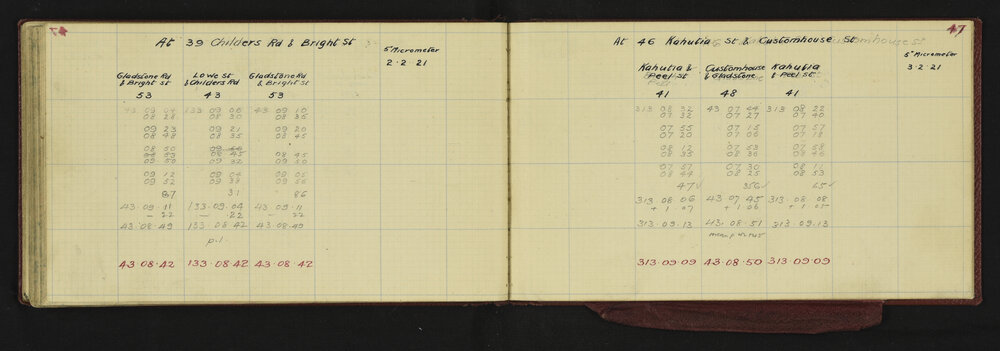 At 39 Childers Rd & Bright St
5" Micrometer
2·2·21
Gladstone Rd & Bright St
Lowe St & Childers Rd
Gladstone Rd & Bright St
53 43 53
43 09 04 133 09 06 43 09 10
08 28 08 30 08 36
09 23 09 21 09 20
08 48 08 35 08 45
08 50
08 45 08 45
09 50 09 32 09 50
09 12 09 04 09 05
09 52
87 31 86
43·09·11 133·09·04 43·09·11
- 22 - 22 - 22
43·08·49 133·08·42 43·08·49
p.1.
43·08·42 133·08·42 43·08·42
47
At 46 Kahutia St & Customhouse St
5" Micrometer
3·2·21
Kahutia & Peel St
Customhouse & Gladstone
Kahutia & Peel St
41 48 41
313 08 32 43 07 44 313 08 22
07 32 07 27 07 40
07 55 07 15 07 57
07 20 07 06 07 18
08 12 07 53 07 58
08 35 08 36 08 46
07 57 07 30 08 11
08 44 08 25 08 53
47✓ 356✓ 65✓
313·08·06 43·07·45 313·08·08
+ 1·07 + 1·06 + 1·05
313·09·13 43·08·51 313·09·13
313·09·09 43·08·50 313·09·09